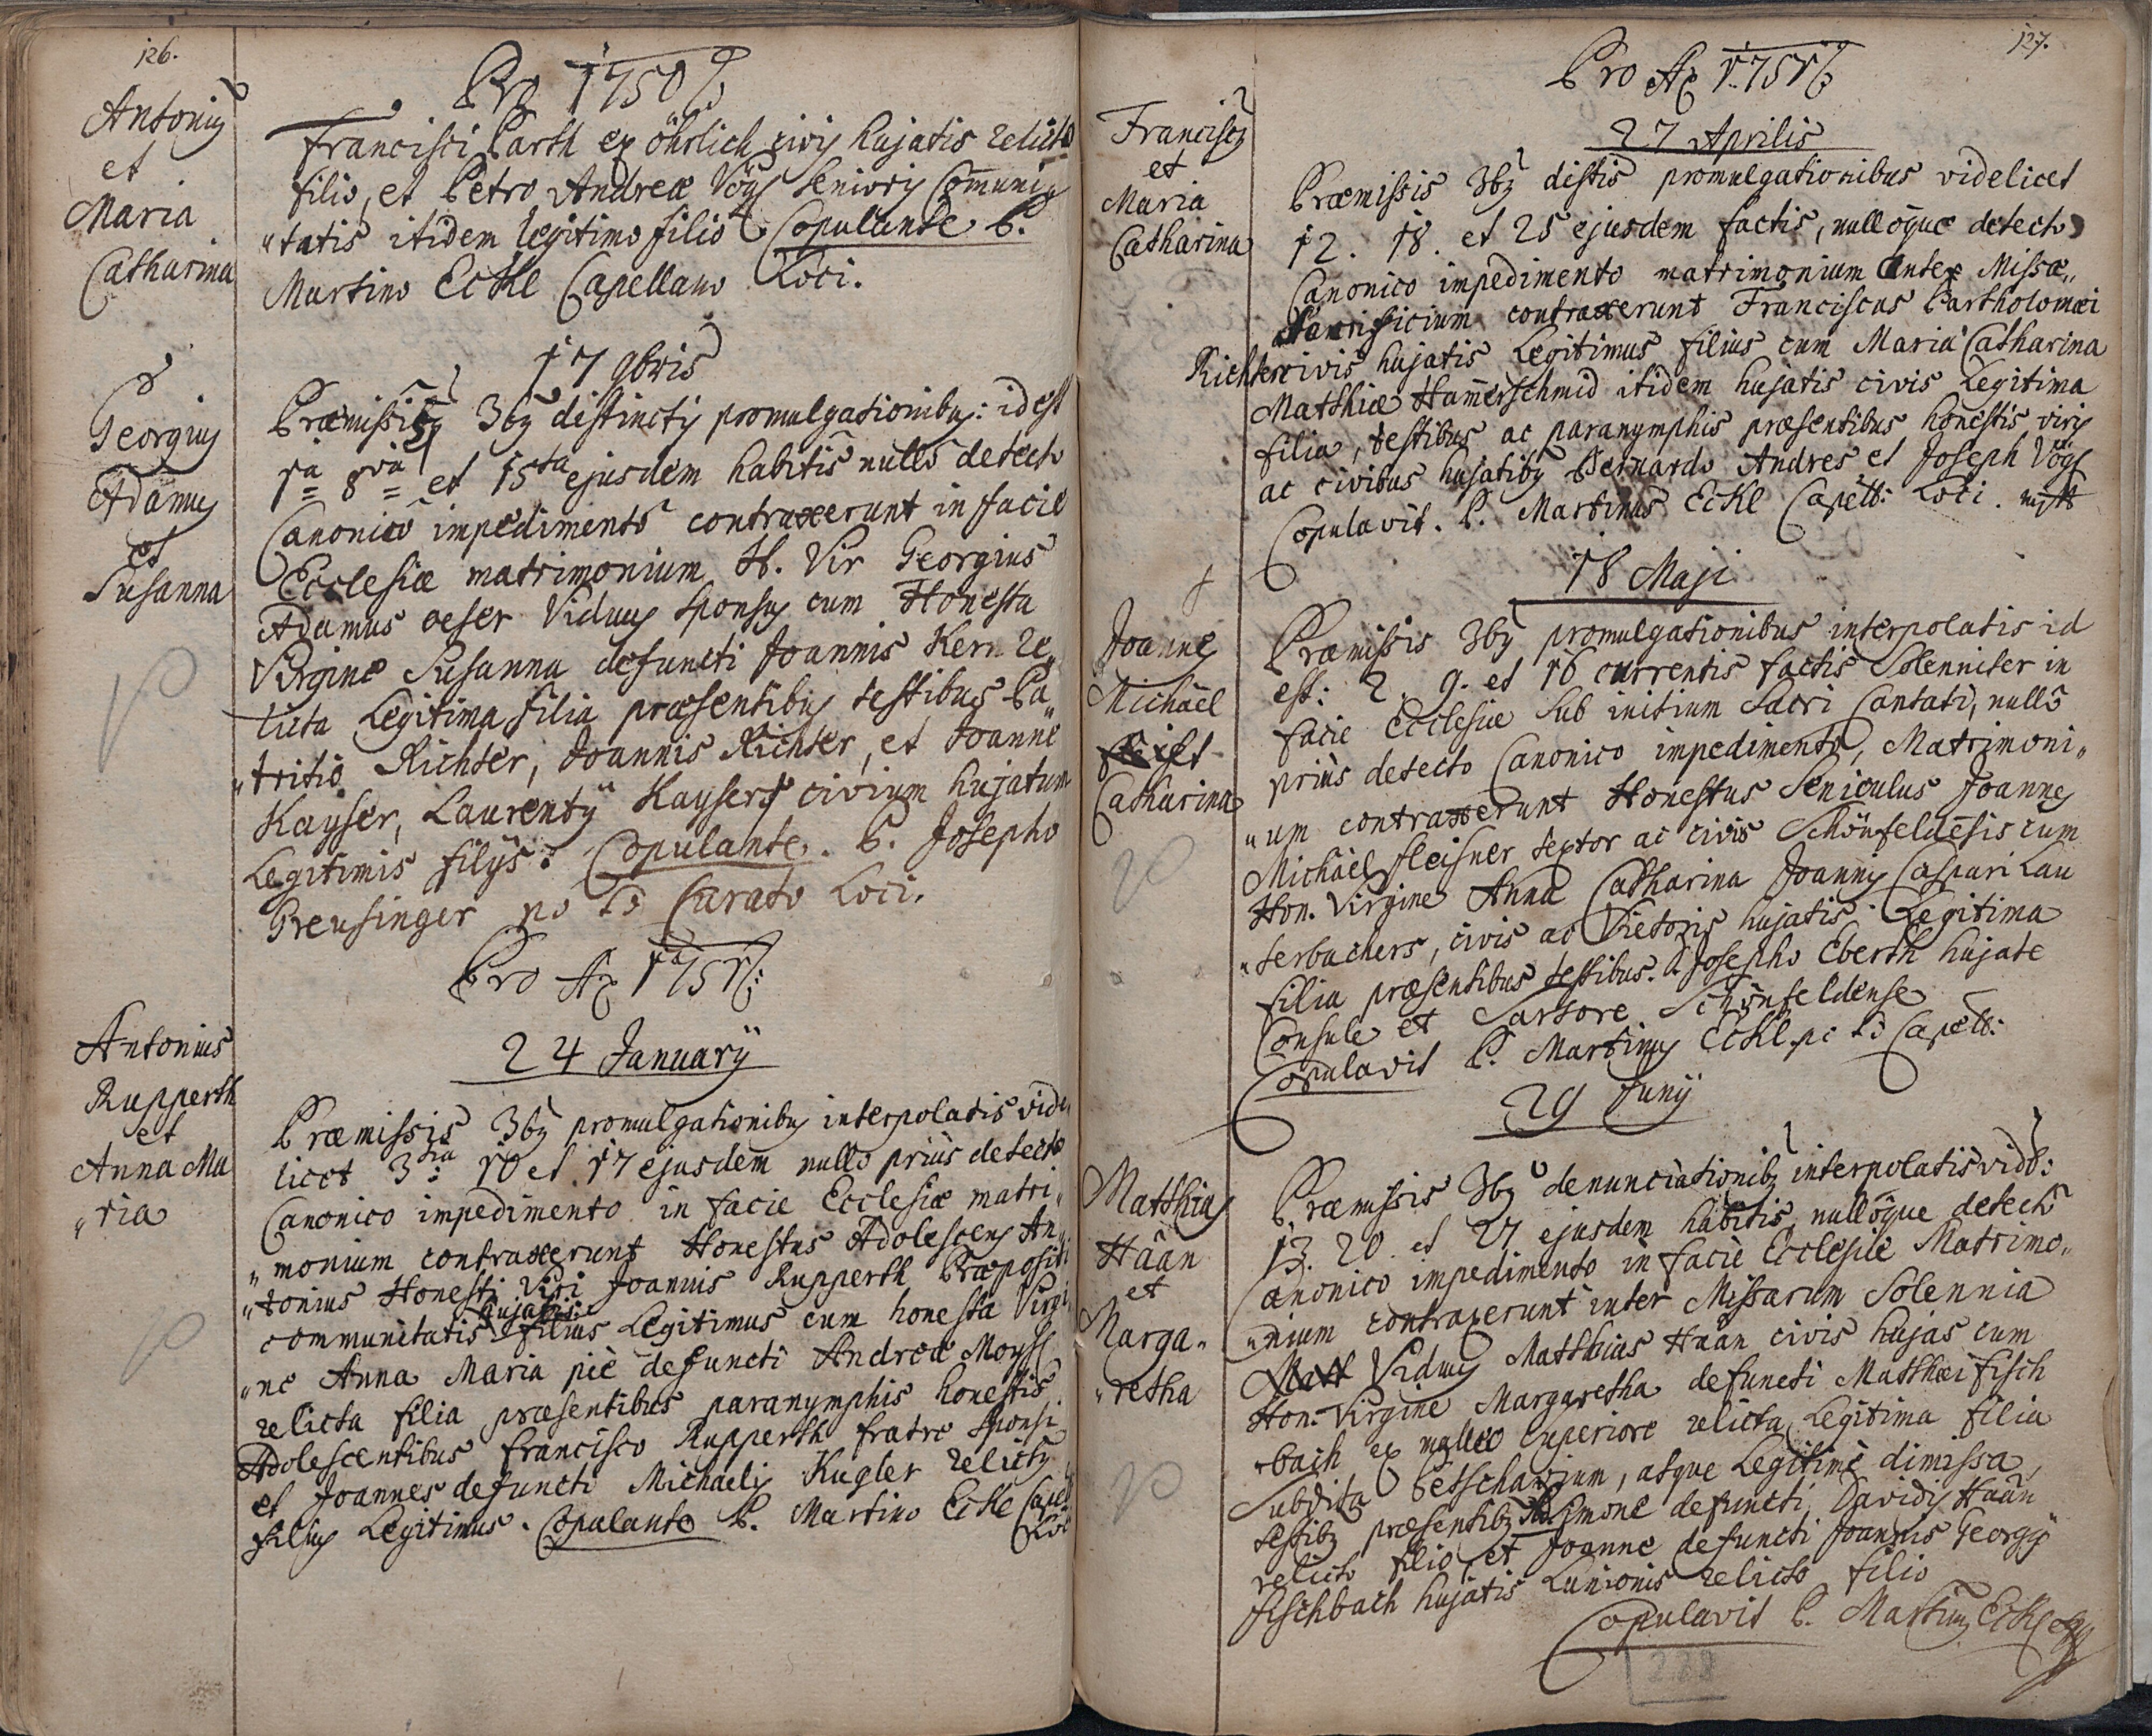 126.
Pro 1750
Antonius
et
Maria
Catharina
Francisci Barth ex öhrlich civis hujatis relicto
filio, et Petro Andreæ Vögl senioris Communi„
„tatis itidem legitimo filio. Copulante P.
Martino Eckl Capellano Loci.
17 9bris
Georgius
Adamus
et
Susanna
Præmissis 3bus distinctis promulgationibus: id est
1a 8va et 15ta ejusdem habitis nullo detecto
Canonico impedimento contraxerunt in facie
Ecclesiæ matrimonium H. Vir Georgius
Adamus oeser Viduus sponsus cum Honesta
Virgine Susanna defuncti Joannis Kern re„
licta Legitima filia præsentibus testibus Pa„
„tritio Richter, Joannis Richter, et Joanne
Kayser, Laurentÿ Kayser civium hujatum
Legitimis filÿs: Copulante. P. Josepho
Greusinger Curato Loci.
Pro Ao 1751:
24 Januarÿ
Antonius
Rupperth
et
Anna Ma
„ria
Præmissis 3bus promulgationibus interpolatis vide„
licet 3tia 10 et 17 ejusdem nullo priùs detecto
Canonico impedimento in facie Ecclesiæ matri„
„monium contraxerunt Honestus Adolescens An„
„tonius Honesti Viri Joannis Rupperth Præpositi
communitatis hujatis filius Legitimus cum honesta Virgi„
„ne Anna Maria piè defuncti Andreæ Moysl
relicta filia præsentibus paranymphis honestis
Adolescentibus Francisco Rupperth fratre sponsi
et Joannes defuncti Michaelis Kugler relictus
filius Legitimus. Copulante P. Martino Eckl Capell:
Loci
127.
Pro Ao 1751:
27 Aprilis
Franciscus
et
Maria
Catharina
Præmissis 3bus distis promulgationibus videlicet
12. 18. et 25 ejusdem factis, nullóque detecto
Canonico impedimento matrimonium inter Missæ„
Sacrificium contraxerunt Franciscus Bartholomæi
Richter civis hujatis Legitimus filius cum Maria Catharina
Matthiæ Hamerschmid itidem hujatis civis Legitima
filia, testibus ac paranymphis præsentibus honestis viris
ac civibus hujatibus Bernardo Andres et Joseph Vögl
Copulavit. P. Martinus Eckl Capell: Loci.
18 Maji
Joannes
Michäel
et
Catharina
Præmissis 3bus promulgationibus interpolatis id
est: 2. 9. et 16 currentis factis Solenniter in
facie Ecclesiæ Sub initium Sacri Cantati, nullo
priùs detecto Canonico impedimento, Matrimoni„
„um contraxerunt Honestus Seniculus Joannes
Michäel fleisner textor ac civis Schönfeldēsis cum
Hon. Virgine Anna Catharina Joannis Caspari Lau
„terbachers, civis ac Vietoris hujatis Legitima
filia præsentibus testibus. Josepho Eberth hujate
Consule et Sartore Schönfeldense
Copulavit P. Martinus Eckl Capell:
29 Junÿ
Matthias
Häan
et
Marga„
„retha
Præmissis 3bus denunciationibus interpolatis vidl:
13. 20. et 27 ejusdem habitis, nullóque detecto
Canonico impedimento in facie Ecclesiæ Matrimo„
„nium contraxerunt inter Missarum Solennia
Viduus Matthias Häan civis hujas cum
Hon. Virgine Margaretha defuncti Matthæi fisch
„bach ex malleo superiore relicta Legitima filia
Subdita Petschavium, atque Legitimè dimissa,
testibus præsentibus Simone defuncti Davidis Häan
relicto filio, et Joanne defuncti Joannis Georgÿ
fischbach hujatis Lanionis relicto filio
Copulavit P. Martinus Eckl